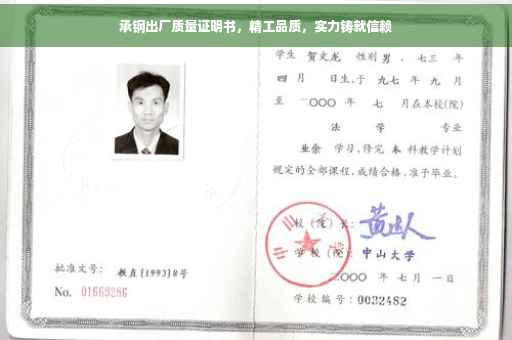 承钢出厂质量证明书，精工品质，实力铸就信赖
学生 贺文龙 性别 男 、七三 年
四 月 日生,于 九七 年 九 月
至 二○○○ 年 七 月在本校(院)
法 学 专业
业余 学习,修完 本 科教学计划
规定的全部课程,成绩合格,准予毕业。
校(院)长:
学校(院): 中山大学
二○○○ 年 七 月 一 日
学校编号: 0032482
批准文号: 教直[1993]8号
No. 01669286